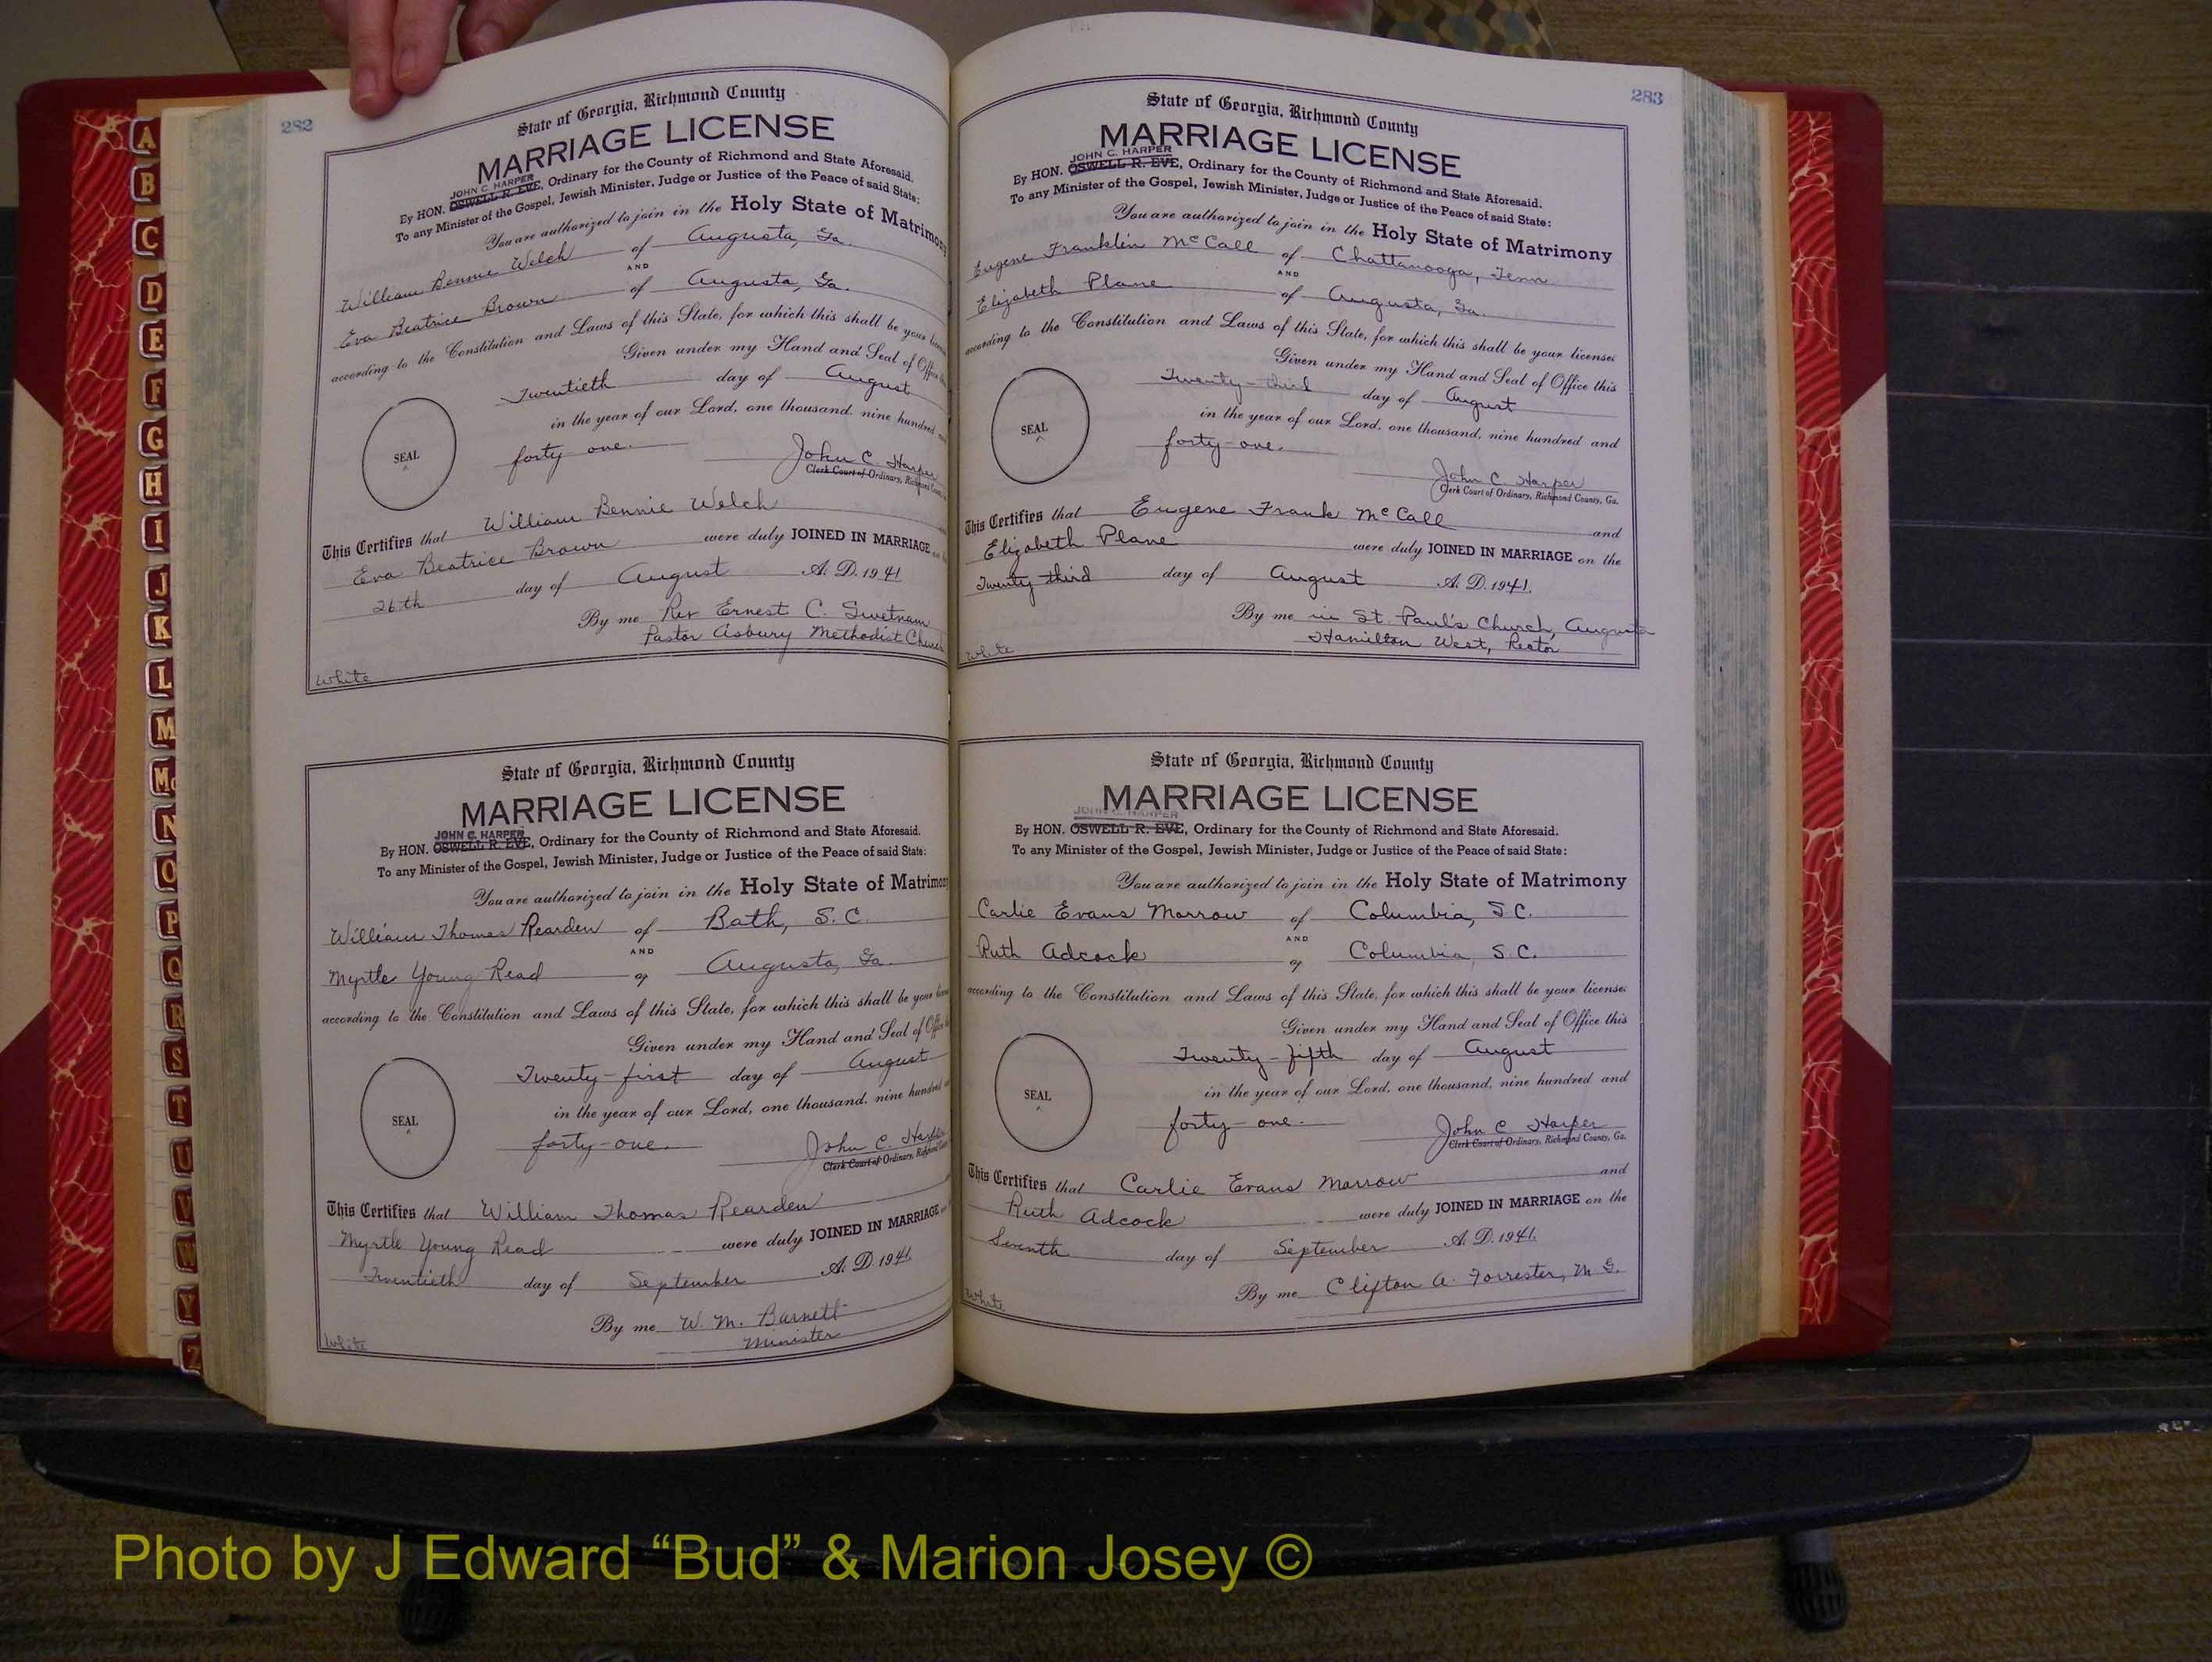 282
State of Georgia, Richmond County
MARRIAGE LICENSE
JOHN C. HARPER
By HON. OSWELL R. EVE, Ordinary for the County of Richmond and State Aforesaid.
To any Minister of the Gospel, Jewish Minister, Judge or Justice of the Peace of said State:
You are authorized to join in the Holy State of Matrimony
William Bennie Welch of Augusta, Ga.
AND
Eva Beatrice Brown of Augusta, Ga.
according to the Constitution and Laws of this State, for which this shall be your
Given under my Hand and Seal of Office
Twentieth day of August
in the year of our Lord, one thousand, nine hundred
SEAL
forty one.
John C. Harper
Clerk Court of Ordinary, Richmond
This Certifies that William Bennie Welch
Eva Beatrice Brown were duly JOINED IN MARRIAGE
26th day of August A. D. 1941
By me Rev Ernest C. Swetnam
Pastor Asbury Methodist Church
White
State of Georgia, Richmond County
MARRIAGE LICENSE
JOHN C. HARPER
By HON. OSWELL R. EVE, Ordinary for the County of Richmond and State Aforesaid.
To any Minister of the Gospel, Jewish Minister, Judge or Justice of the Peace of said State:
You are authorized to join in the Holy State of Matrimony
William Thomas Rearden of Bath, S. C.
AND
Myrtle Young Read of Augusta, Ga.
according to the Constitution and Laws of this State, for which this shall be your
Given under my Hand and Seal of Office
Twenty-first day of August
in the year of our Lord, one thousand, nine hundred
SEAL
forty-one.
John C. Harper
Clerk Court of Ordinary, Richmond
This Certifies that William Thomas Rearden
Myrtle Young Read were duly JOINED IN MARRIAGE
Twentieth day of September A. D. 1941.
By me W. M. Barnett
Minister
White
283
State of Georgia, Richmond County
MARRIAGE LICENSE
JOHN C. HARPER
By HON. OSWELL R. EVE, Ordinary for the County of Richmond and State Aforesaid.
To any Minister of the Gospel, Jewish Minister, Judge or Justice of the Peace of said State:
You are authorized to join in the Holy State of Matrimony
Eugene Franklin McCall of Chattanooga, Tenn.
AND
Elizabeth Plane of Augusta, Ga.
according to the Constitution and Laws of this State, for which this shall be your license:
Given under my Hand and Seal of Office this
Twenty-third day of August
in the year of our Lord, one thousand, nine hundred and
SEAL
forty-one.
John C. Harper
Clerk Court of Ordinary, Richmond County, Ga.
This Certifies that Eugene Frank McCall and
Elizabeth Plane were duly JOINED IN MARRIAGE on the
Twenty third day of August A. D. 1941.
By me in St. Paul's Church, Augusta
Hamilton West, Rector
White
State of Georgia, Richmond County
MARRIAGE LICENSE
JOHN C. HARPER
By HON. OSWELL R. EVE, Ordinary for the County of Richmond and State Aforesaid.
To any Minister of the Gospel, Jewish Minister, Judge or Justice of the Peace of said State:
You are authorized to join in the Holy State of Matrimony
Carlie Evans Morrow of Columbia, S.C.
AND
Ruth Adcock of Columbia, S.C.
according to the Constitution and Laws of this State, for which this shall be your license:
Given under my Hand and Seal of Office this
Twenty-fifth day of August
in the year of our Lord, one thousand, nine hundred and
SEAL
forty-one.
John C Harper
Clerk Court of Ordinary, Richmond County, Ga.
This Certifies that Carlie Evans Morrow and
Ruth Adcock were duly JOINED IN MARRIAGE on the
Seventh day of September A. D. 1941.
By me Clifton A. Forrester, M. G.
White
A
B
C
D
E
F
G
H
I
J
K
L
M
Mc
N
O
P
Q
R
S
T
U
V
W
Y
Z
Photo by J Edward “Bud” & Marion Josey ©